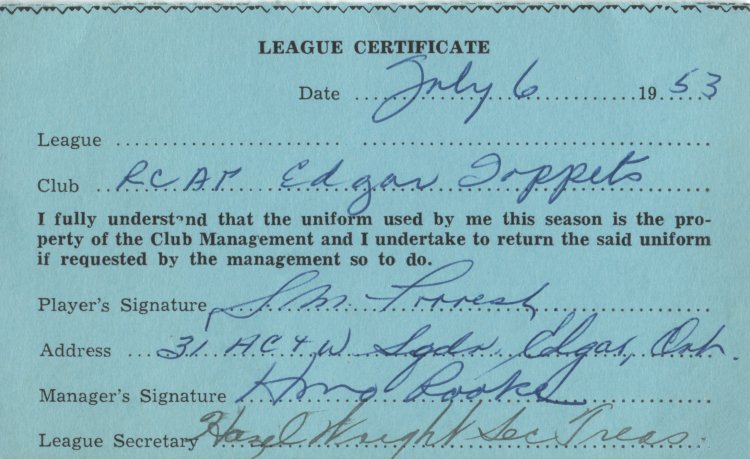 LEAGUE CERTIFICATE
Date July 6 1953
League
Club RCAF Edgar Toppets
I fully understand that the uniform used by me this season is the pro-
perty of the Club Management and I undertake to return the said uniform
if requested by the management so to do.
Player's Signature S. M.
Address 31 AC & W Sqdn. Edgar, Ont.
Manager's Signature
League Secretary Hazel Wright Sec Treas.